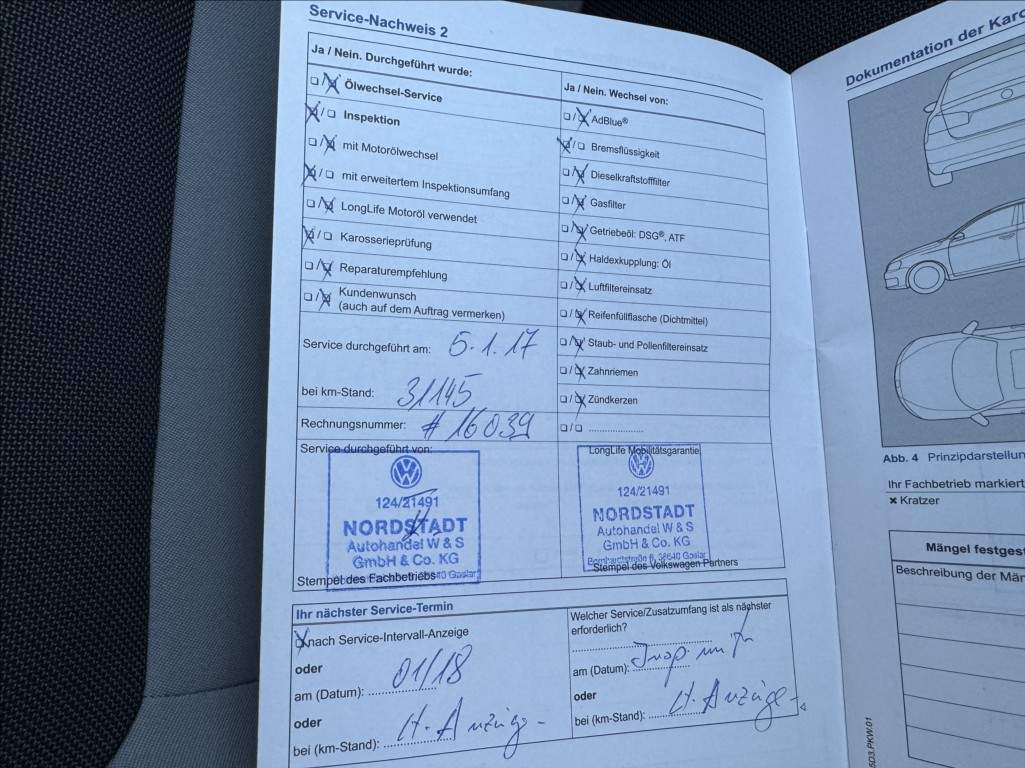 Service-Nachweis 2
Ja / Nein. Durchgeführt wurde:
Ölwechsel-Service
Inspektion
mit Motorölwechsel
mit erweitertem Inspektionsumfang
LongLife Motoröl verwendet
Karosserieprüfung
Reparaturempfehlung
Kundenwunsch
(auch auf dem Auftrag vermerken)
Service durchgeführt am: 5.1.17
bei km-Stand: 31145
Rechnungsnummer: #16039
Ja / Nein. Wechsel von:
AdBlue®
Bremsflüssigkeit
Dieselkraftstofffilter
Gasfilter
Getriebeöl: DSG®, ATF
Haldexkupplung: Öl
Luftfiltereinsatz
Reifenfüllflasche (Dichtmittel)
Staub- und Pollenfiltereinsatz
Zahnriemen
Zündkerzen
Service durchgeführt von:
124/21491
NORDSTADT
Autohandel W & S
GmbH & Co. KG
38640 Goslar
Stempel des Fachbetriebs
LongLife Mobilitätsgarantie
124/21491
NORDSTADT
Autohandel W & S
GmbH & Co. KG
Bornhardtstraße 6, 38640 Goslar
Stempel des Volkswagen Partners
Ihr nächster Service-Termin
nach Service-Intervall-Anzeige
oder
am (Datum): 01/18
oder
bei (km-Stand): lt. Anzeige
Welcher Service/Zusatzumfang ist als nächster
erforderlich?
am (Datum): Insp mit
oder
bei (km-Stand): lt. Anzeige
Dokumentation der Karo
Abb. 4 Prinzipdarstellun
Ihr Fachbetrieb markiert
Kratzer
Mängel festgest
Beschreibung der Män
6D3.PKW.01